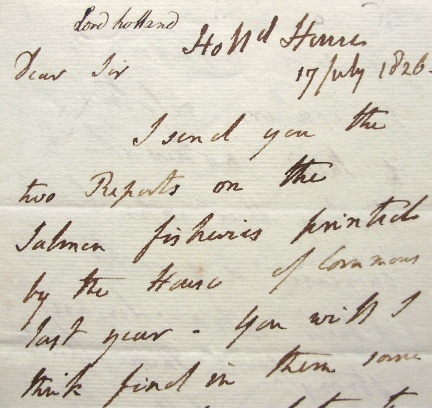 Lord Holland
Holld House
Dear Sir
17 July 1826.
I send you the
two Reports on the
Salmon fisheries printed
by the House of Commons
last year - You will I
think find in them some